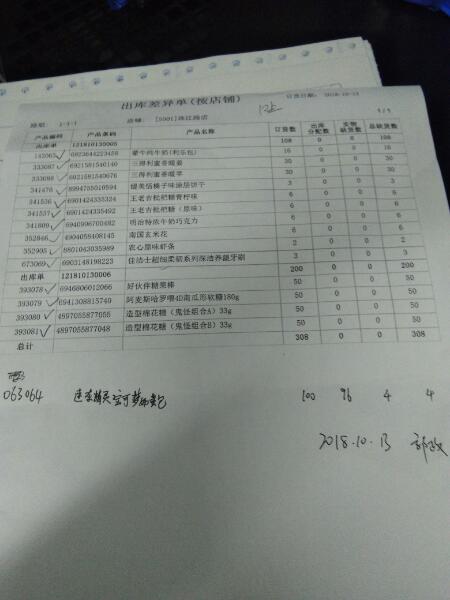 出库差异单(按店铺)
订货日期: 2018-10-13
班组: 1-1-1 店铺: [5001]珠江路店 1/1
产品编码 产品条码 产品名称 订货数 出库分配数 实物缺货数 总缺货数
出库单 121810130005 108 0 0 108
143063 6923644223458 蒙牛纯牛奶(利乐包) 16 0 0 16
333087 6921581540140 三得利蜜香暖姜 30 0 0 30
333088 6921581540676 三得利蜜香暖苹 30 0 0 30
341478 8994755010594 缇美佰榛子味涂层饼干 3 0 0 3
341536 6901424335324 王老吉枇杷糖青柠味 6 0 0 6
341537 6901424335492 王老吉枇杷糖(原味) 6 0 0 6
341809 6940996700482 明治特浓牛奶巧克力 6 0 0 6
352846 6904058408145 南国玄米花 6 0 0 6
352905 8801043035989 农心原味虾条 2 0 0 2
673069 6903148198223 佳洁士超细柔韧系列深洁养龈牙刷 3 0 0 3
出库单 121810130006 200 0 0 200
393078 6946806012066 好伙伴糖果棒 50 0 0 50
393079 6941308815749 阿麦斯哈罗喂4D南瓜形软糖180g 50 0 0 50
393080 4897055877055 造型棉花糖(鬼怪组合A)33g 50 0 0 50
393081 4897055877048 造型棉花糖(鬼怪组合B)33g 50 0 0 50
总计 308 0 0 308
063064 宝可梦 100 96 4 4
2018.10.13